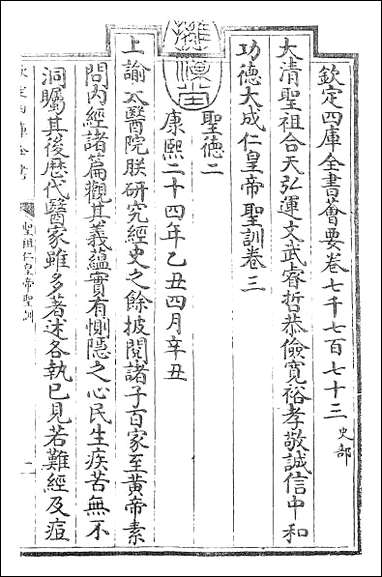 欽定四庫全書薈要卷七千七百七十三 史部
大清聖祖合天弘運文武睿哲恭儉寛裕孝敬誠信中和
功德大成仁皇帝聖訓卷三
聖德二
康熙二十四年乙丑四月辛丑
上諭太醫院朕研究經史之餘披閱諸子百家至黃帝素
問內經諸篇觀其義蘊實有惻隱之心民生疾苦無不
洞矚其後歴代醫家雖多著述各執已見若難經及痘
聖祖仁皇帝聖訓